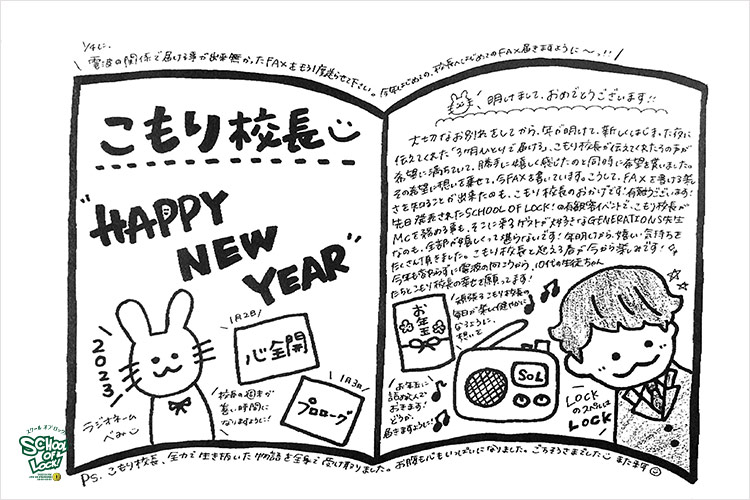 1/4に、
電波の関係で届ける事が出来無かったFAXをもう1度送らせて下さい。今年はじめての、校長へはじめてのFAX届きますように〜っ!!
こもり校長
"HAPPY
NEW
YEAR"
1月2日
心全開
2023
1月3日
プロローグ
校長の
良い時間に
なりますように!
ラジオネーム
べみ
明けまして、おめでとうございます!!
大切なお別れをしてから、年が明けて、新しくはじまった夜に
伝えてくれた「3ヶ月ひとりで届ける」、こもり校長が伝えてくれたその声が
希望に満ちていて、勝手に嬉しく感じたのと同時に希望を貰いました。
その希望に想いを乗せて、今FAXを書いています。こうして、FAXを書ける楽し
さを知ることが出来たのも、こもり校長のおかげです!有難うございます!
先日発表されたSCHOOL OF LOCK!の有観客イベントで、こもり校長が
MCを務める事も、そこに来るゲストが大好きなGENERATIONS先生
なのも、全部が嬉しくって堪らないです!年明けから、嬉しい気持ちを
たくさん頂きました。こもり校長と迎える春が今から楽しみです!
今年も変わらずに電波の向こうから、10代の生徒ちゃん
たちとこもり校長の幸せを願ってます!
お年玉
頑張るこもり校長の
毎日が楽しく健やかに
なるように、
想いを
お年玉に
詰め込んで
おきます!
どうか、
届きますように!
SOL
LOCK
のスペルは
LOCK
SCHOOL OF LOCK!
PS. こもり校長、全力で生き抜いた物語を全身で受け取りました。お腹も心もいっぱいになりました。ごちそうさまでした また明日